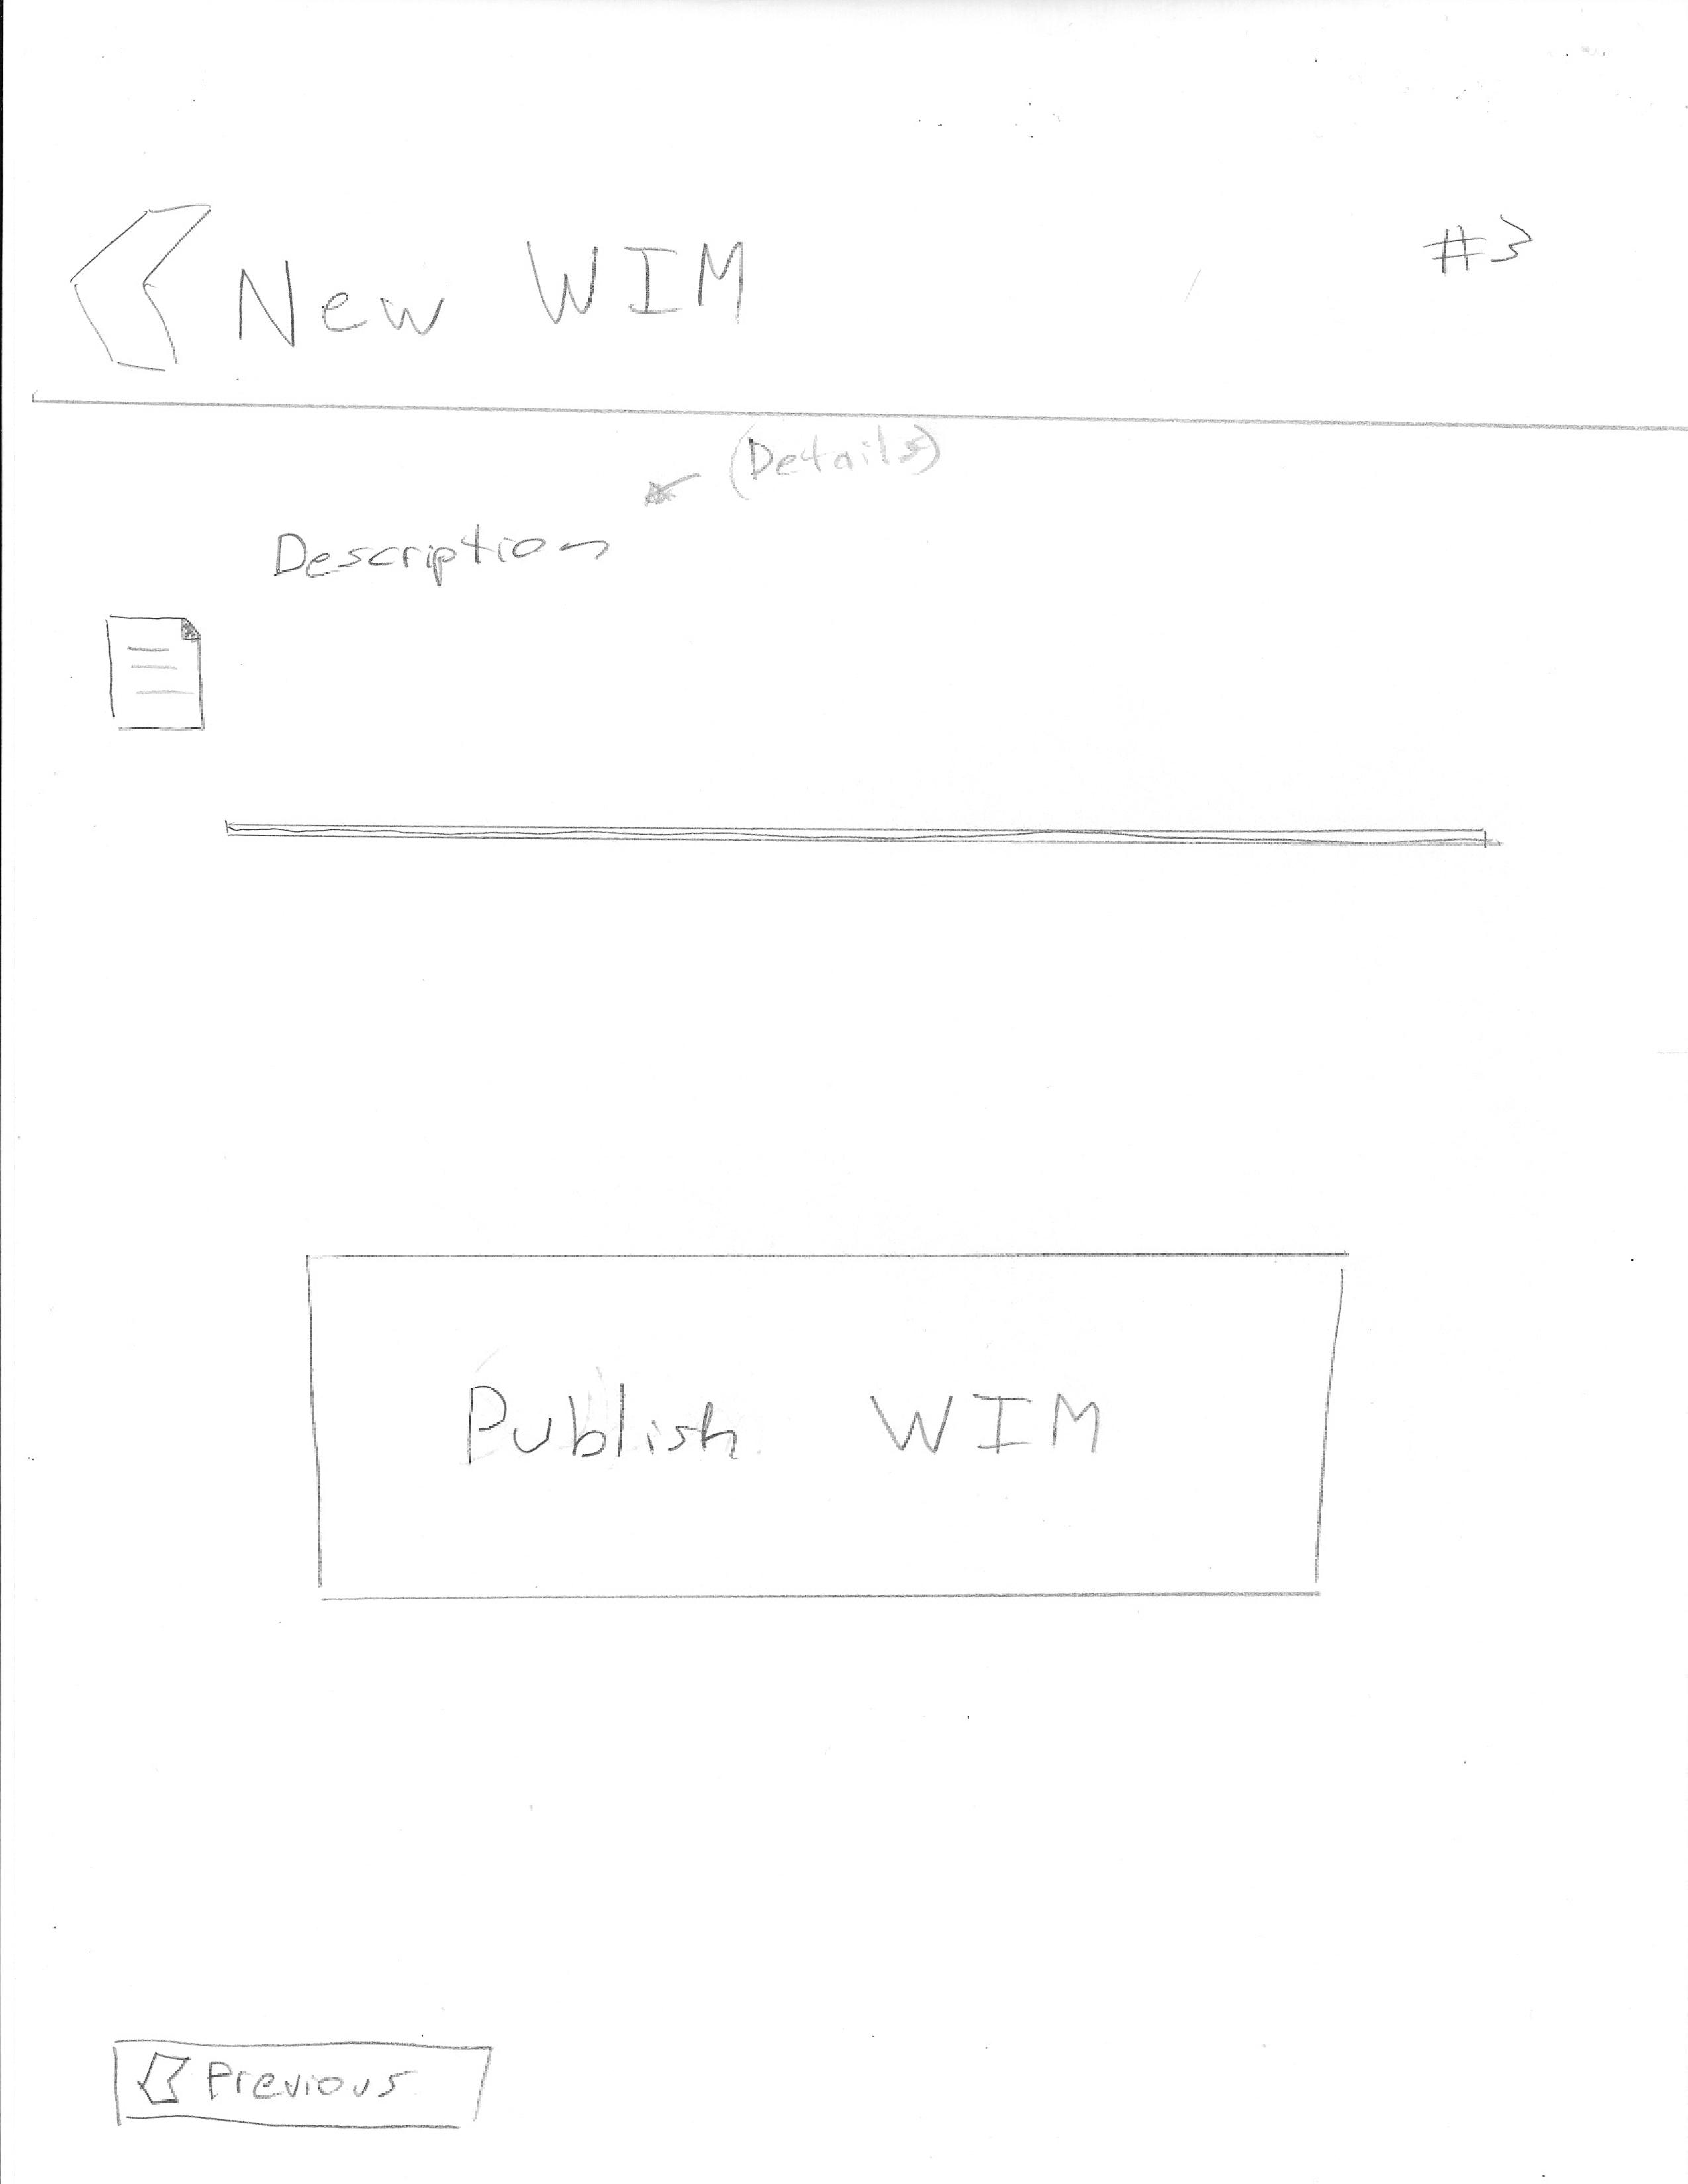 New WIM
#3
(Details)
Description
Publish WIM
Previous